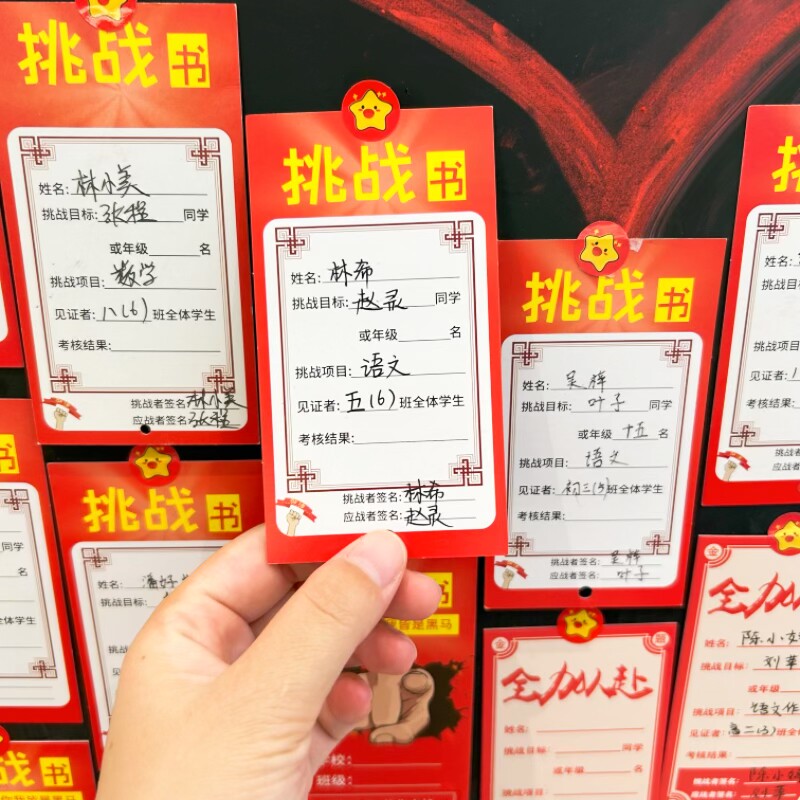 挑战书
姓名: 林小美
挑战目标: 张程 同学
或年级 名
挑战项目: 数学
见证者: 八(6)班全体学生
考核结果:
挑战者签名 林小美
应战者签名 张程
挑战书
姓名: 林希
挑战目标: 赵灵 同学
或年级 名
挑战项目: 语文
见证者: 五(6)班全体学生
考核结果:
挑战者签名: 林希
应战者签名: 赵灵
挑战书
姓名: 吴辉
挑战目标: 叶子 同学
或年级 十五 名
挑战项目: 语文
见证者: 初三(5)班全体学生
考核结果:
挑战者签名: 吴辉
应战者签名: 叶子
挑
姓名:
挑战目标
挑战项目
见证者:
考核结果:
同学
名
全体学生
挑战书
姓名:
挑战目标:
战书
皆是黑马
学校:
班级:
全力以赴
姓名:
挑战目标: 同学
或年级 名
挑战项目:
全力以
姓名: 陈小
挑战目标: 刘苹
或年级
挑战项目: 语文作
见证者: 高二(3)班全体
考核结果:
挑战者签名: 陈小
应战者签名: 刘苹